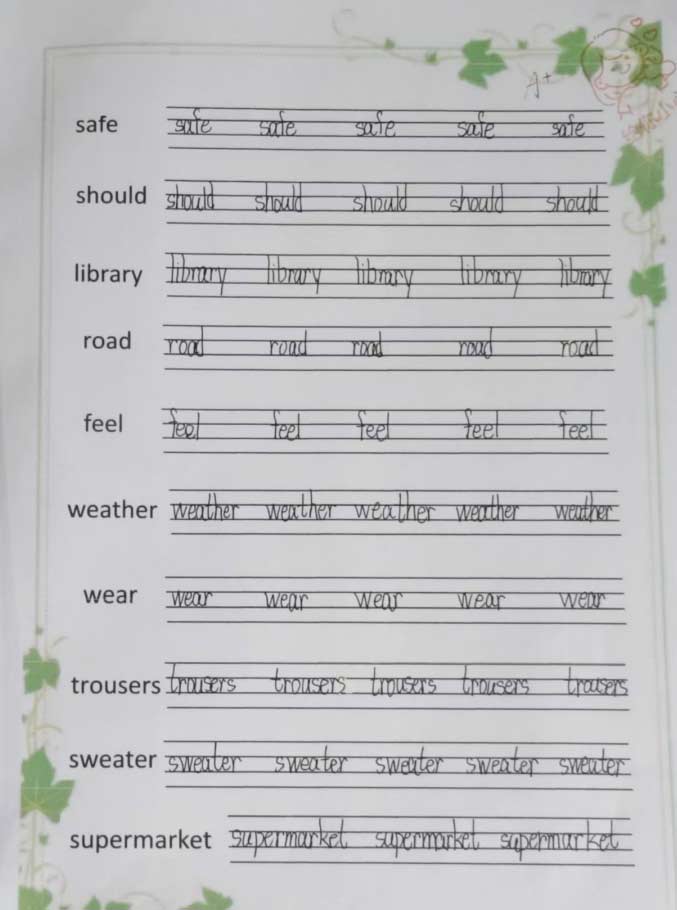 A+
safe safe safe safe safe safe
should should should should should should
library library library library library library
road road road road road road
feel feel feel feel feel feel
weather weather weather weather weather weather
wear wear wear wear wear wear
trousers trousers trousers trousers trousers trousers
sweater sweater sweater sweater sweater sweater
supermarket supermarket supermarket supermarket